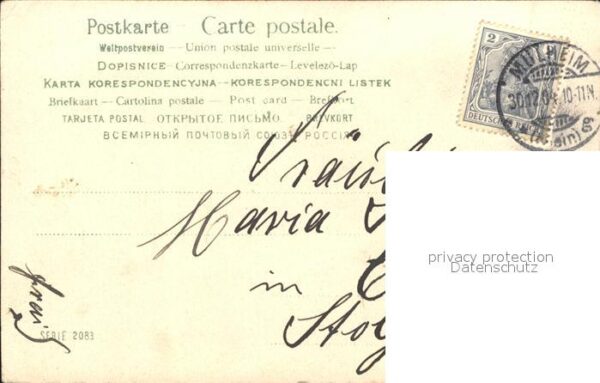 Postkarte — Carte postale.
Weltpostverein — Union postale universelle —
DOPISNICE — Correspondenzkarte — Levelező-Lap
KARTA KORESPONDENCYJNA — KORESPONDENCNI LISTEK
Briefkaart — Cartolina postale — Post card — Brefkort
TARJETA POSTAL ОТКРЫТОЕ ПИСЬМО. BREVKORT
ВСЕМІРНЫЙ ПОЧТОВЫЙ СОЮЗЪ РОССІЯ
2
MÜLHEIM
30.12.04. 10-11N.
(Rhein)
Maria
in
SERIE 2083
privacy protection
Datenschutz